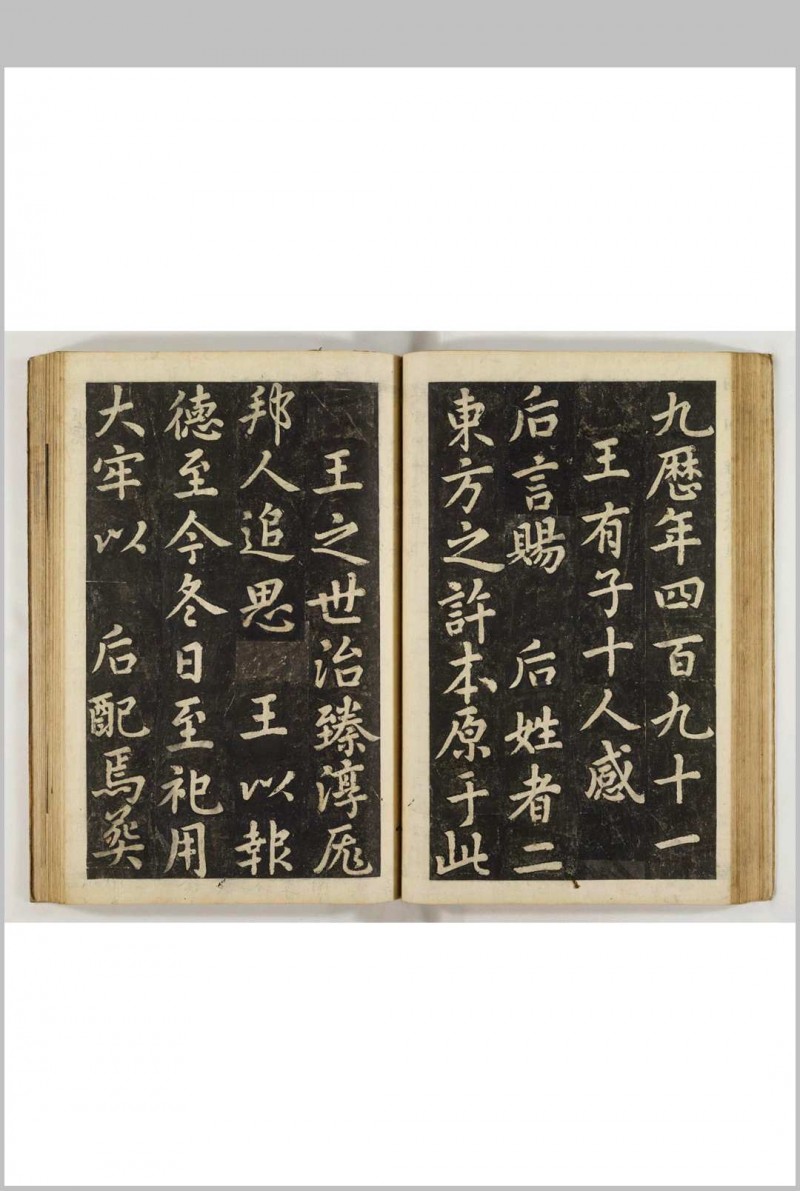 九暦年四百九十一
王有子十人感
后言賜 后姓者二
東方之許本原于此
王之世治臻淳厖
邦人追思 王以報
徳至今冬日至祀用
大牢以 后配焉葬